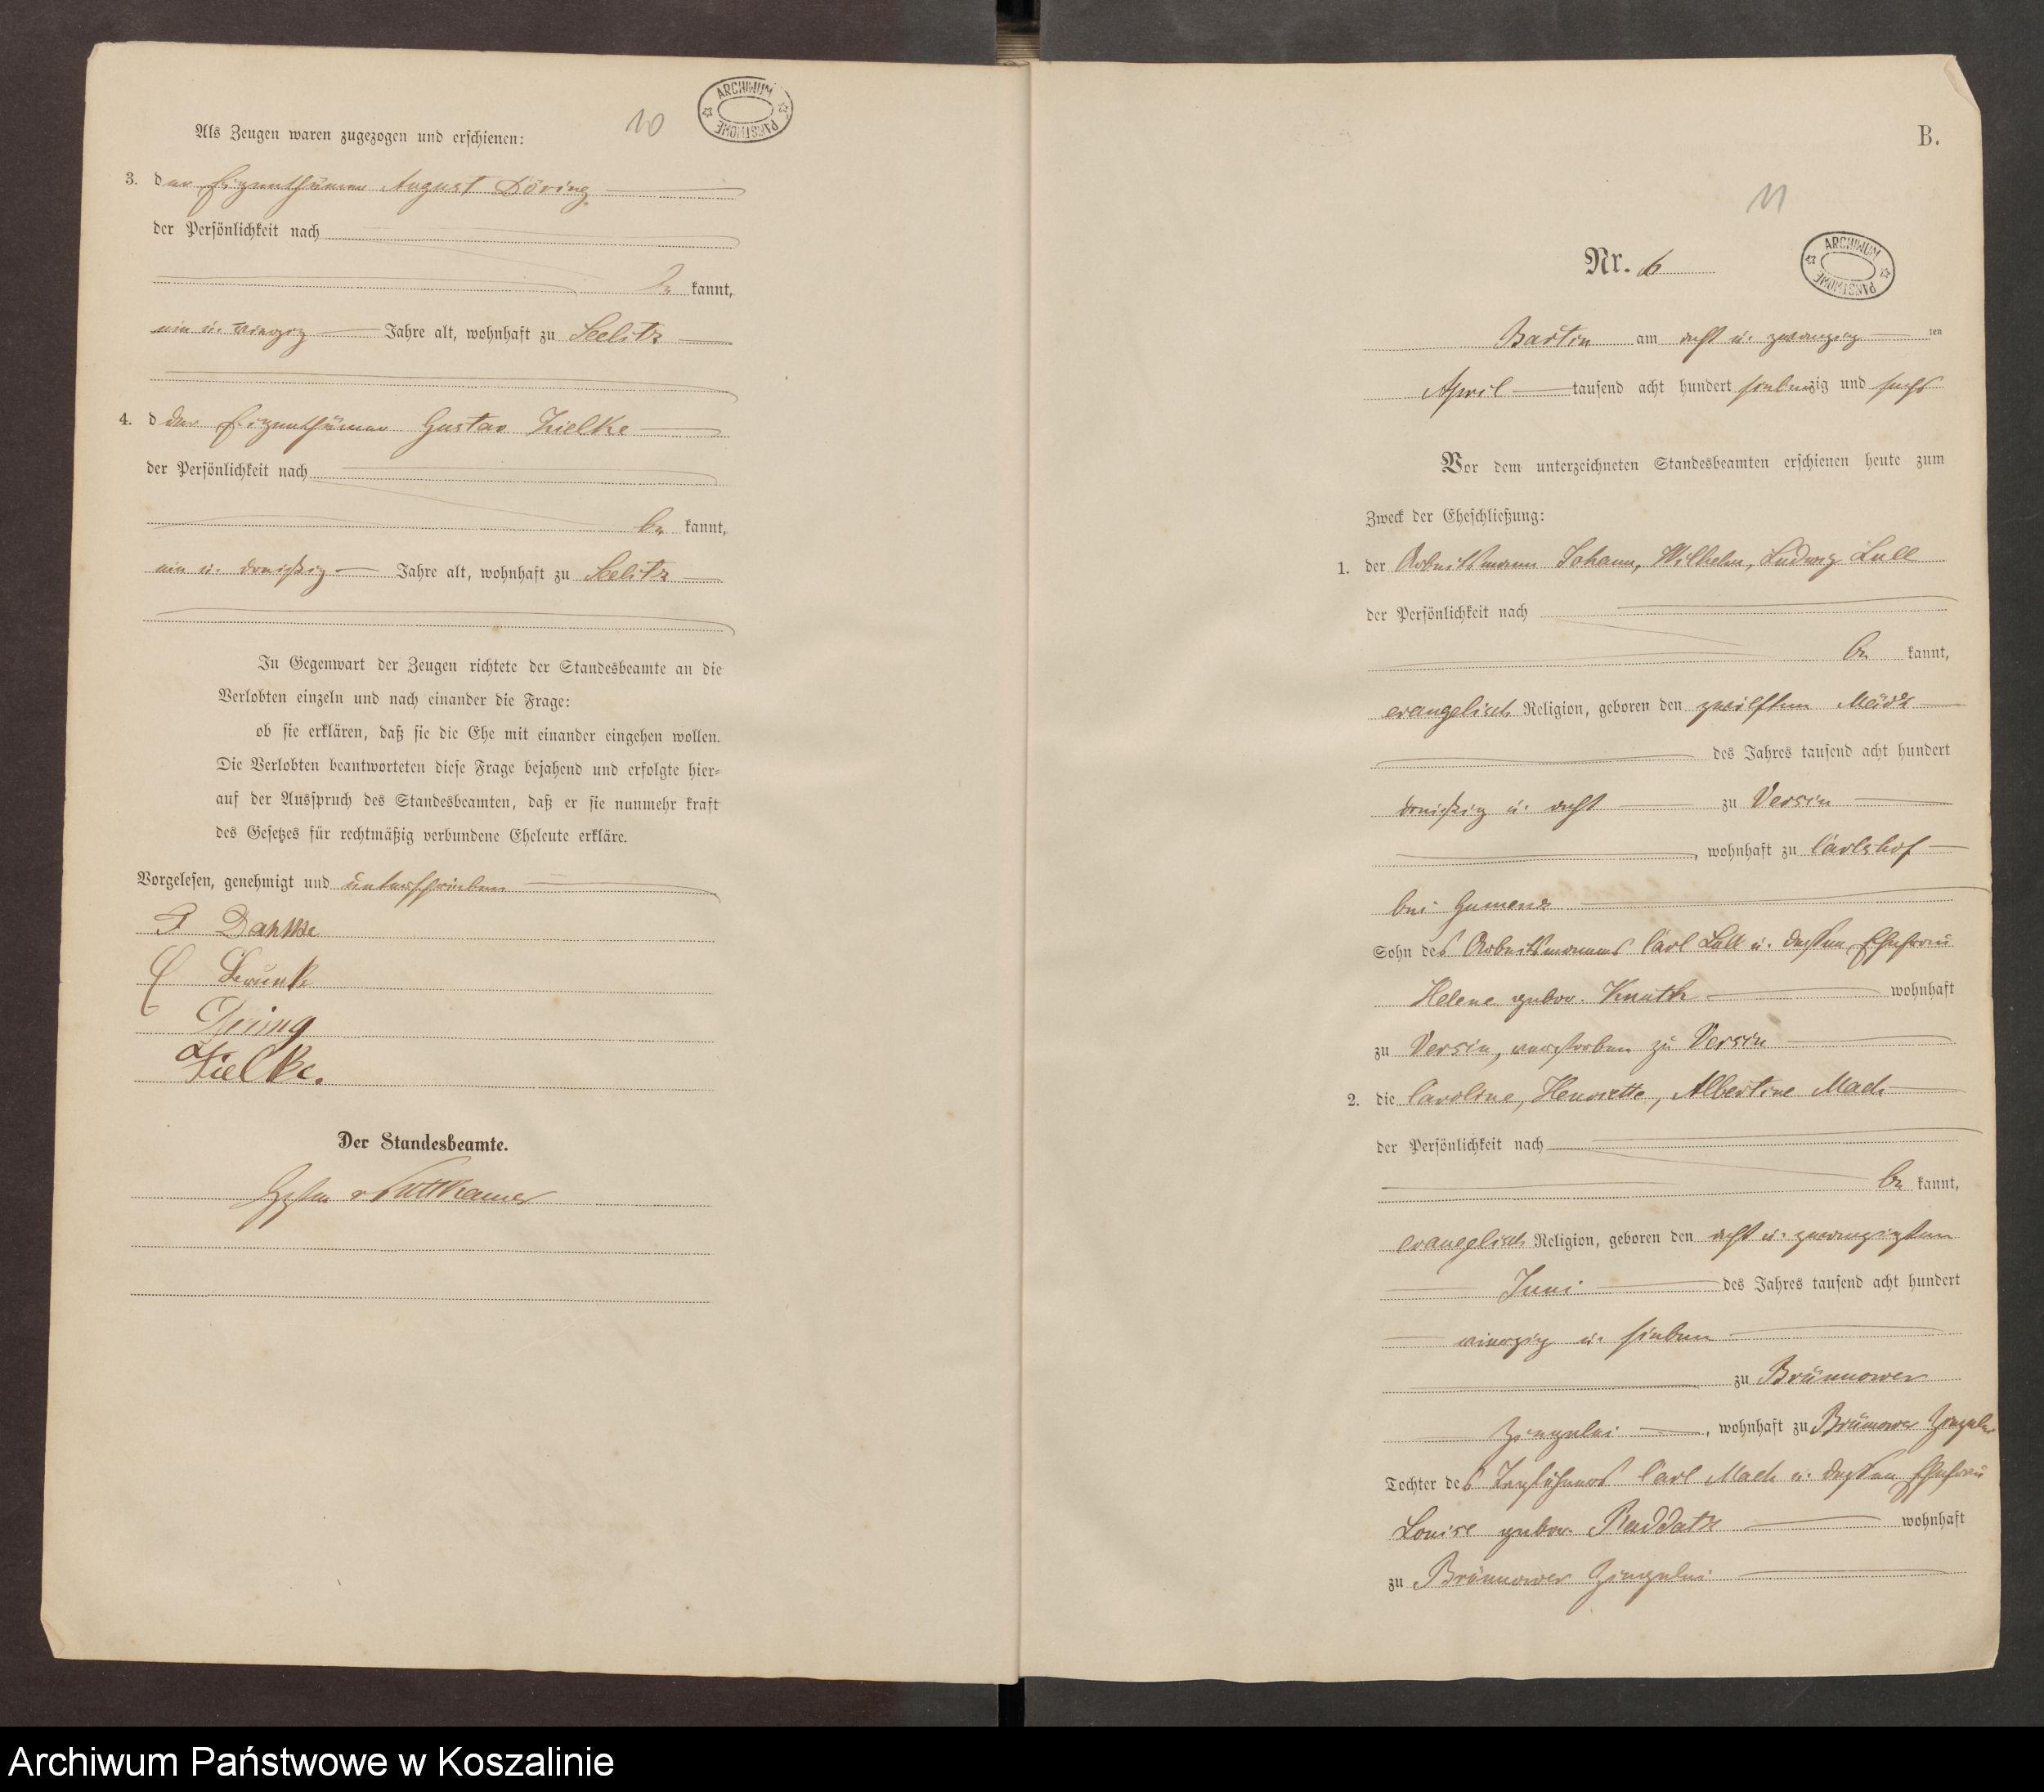 10
ARCHIWUM PAŃSTWOWE
Als Zeugen waren zugezogen und erschienen:
3. der Eigenthümer August Döring
der Persönlichkeit nach
be kannt,
ein u. vierzig Jahre alt, wohnhaft zu Seelitz
4. d der Eigenthümer Gustav Zielke
der Persönlichkeit nach
be kannt,
ein u. dreißig Jahre alt, wohnhaft zu Seelitz
In Gegenwart der Zeugen richtete der Standesbeamte an die
Verlobten einzeln und nach einander die Frage:
ob sie erklären, daß sie die Ehe mit einander eingehen wollen.
Die Verlobten beantworteten diese Frage bejahend und erfolgte hier-
auf der Ausspruch des Standesbeamten, daß er sie nunmehr kraft
des Gesetzes für rechtmäßig verbundene Eheleute erkläre.
Vorgelesen, genehmigt und unterschrieben
Dahlke
Döring
Zielke.
Der Standesbeamte.
v Puttkamer
B.
11
Nr. 6
ARCHIWUM PAŃSTWOWE
Bartin am acht u. zwanzig ten
April tausend acht hundert siebenzig und sechs
Vor dem unterzeichneten Standesbeamten erschienen heute zum
Zweck der Eheschließung:
1. der Arbeitsmann Johann, Wilhelm, Ludwig Lull
der Persönlichkeit nach
be kannt,
evangelisch Religion, geboren den zwölften März
des Jahres tausend acht hundert
dreißig u. acht zu Versin
, wohnhaft zu Carlshof
bei Gumenz
Sohn des Arbeitsmannes Carl Lull u. dessen Ehefrau
Helene gebor. Knuth wohnhaft
zu Versin, verstorben zu Versin
2. die Caroline, Henriette, Albertine Mach
der Persönlichkeit nach
be kannt,
evangelisch Religion, geboren den acht u. zwanzigsten
Juni des Jahres tausend acht hundert
vierzig u. sieben
zu Brünnower
Ziegelei , wohnhaft zu Brünnower Ziegelei
Tochter des Tagelöhners Carl Mach u. dessen Ehefrau
Louise gebor. Raddatz wohnhaft
zu Brünnower Ziegelei
Archiwum Państwowe w Koszalinie